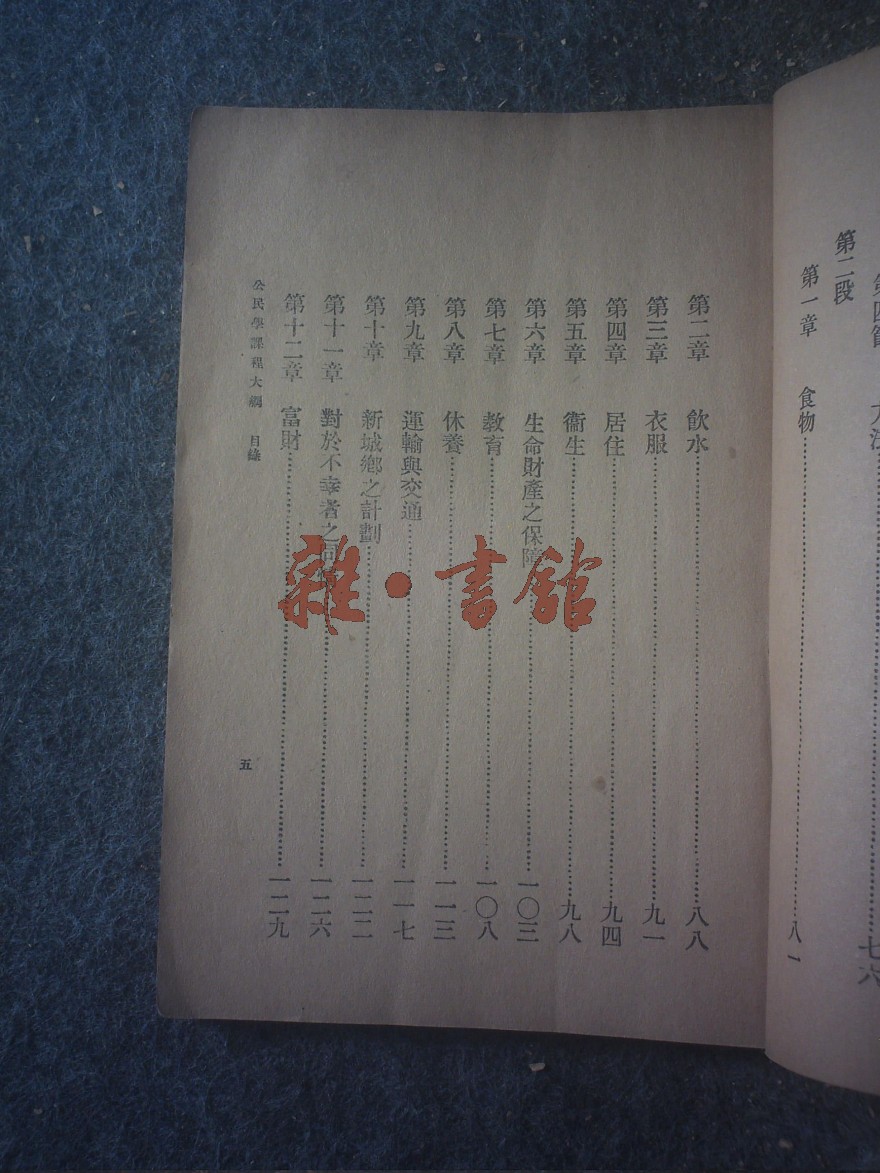 第二段
第一章 食物……八一
第二章 飲水……八八
第三章 衣服……九一
第四章 居住……九四
第五章 衞生……九八
第六章 生命財產之保障……一〇三
第七章 教育……一〇八
第八章 休養……一一三
第九章 運輸與交通……一一七
第十章 新城鄉之計劃……一二二
第十一章 對於不幸者之同情……一二六
第十二章 富財……一二九
公民學課程大綱 目錄
五
雜·書館